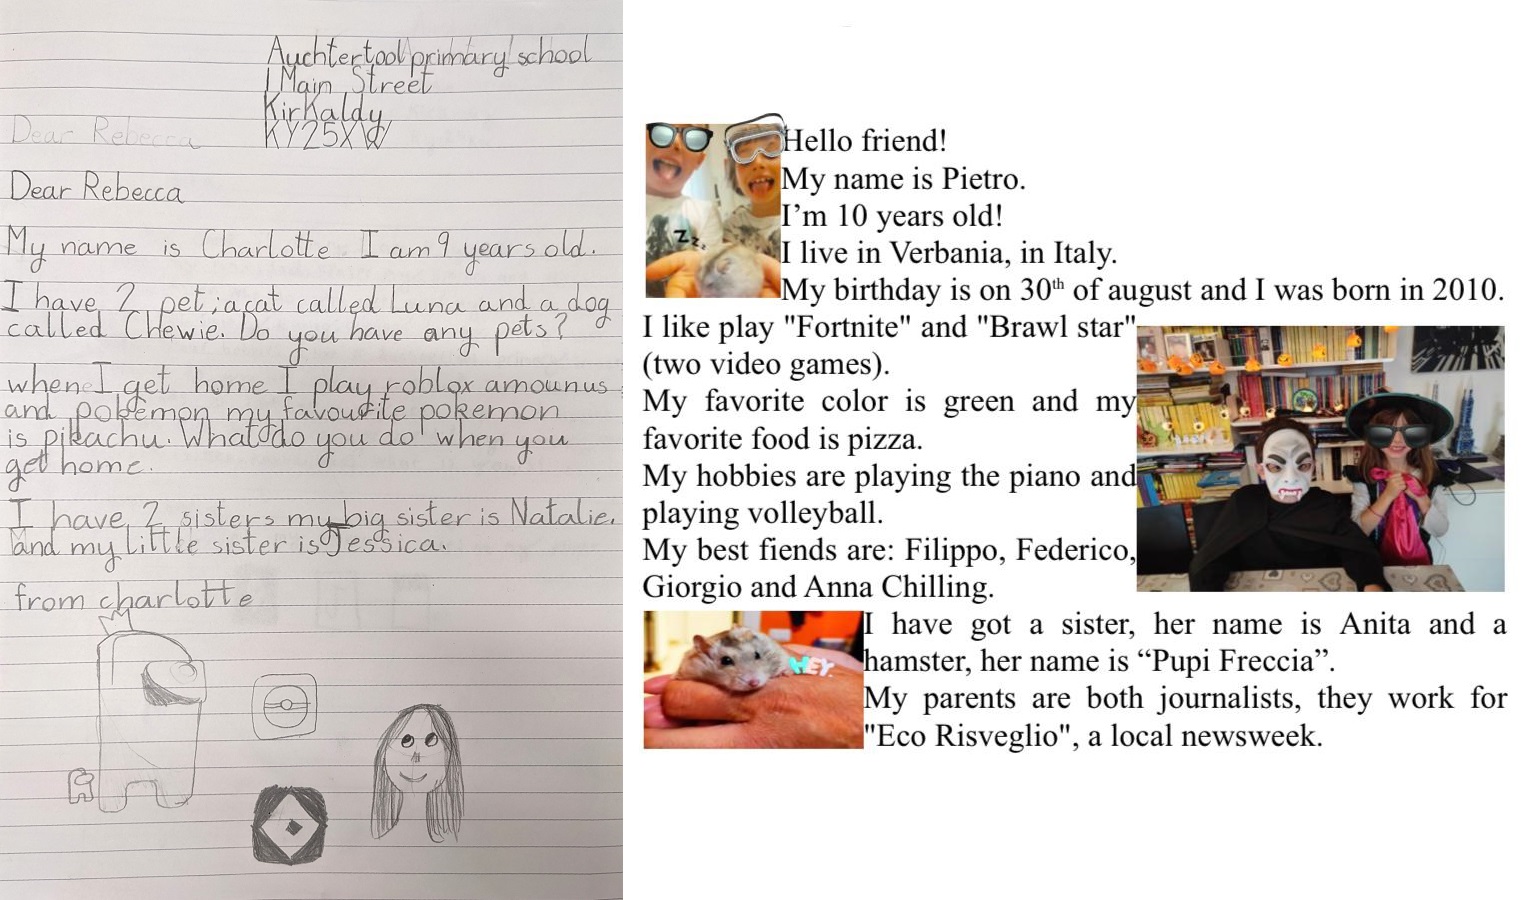 Auchtertool primary school
1 Main Street
KirKaldy
KY25XW
Dear Rebecca
Dear Rebecca
My name is Charlotte I am 9 years old.
I have 2 pet; a cat called Luna and a dog
called Chewie. Do you have any pets?
when I get home I play roblox amounus
and pokemon my favourite pokemon
is pikachu. What do you do when you
get home.
I have 2 sisters my big sister is Natalie.
and my little sister is Jessica.
from charlotte
Hello friend!
My name is Pietro.
I’m 10 years old!
I live in Verbania, in Italy.
My birthday is on 30th of august and I was born in 2010.
I like play "Fortnite" and "Brawl star"
(two video games).
My favorite color is green and my
favorite food is pizza.
My hobbies are playing the piano and
playing volleyball.
My best fiends are: Filippo, Federico,
Giorgio and Anna Chilling.
I have got a sister, her name is Anita and a
hamster, her name is “Pupi Freccia”.
My parents are both journalists, they work for
"Eco Risveglio", a local newsweek.
Zz
HEY